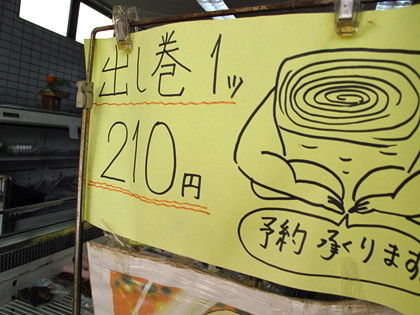 出し巻 1ッ
210円
予約 承ります